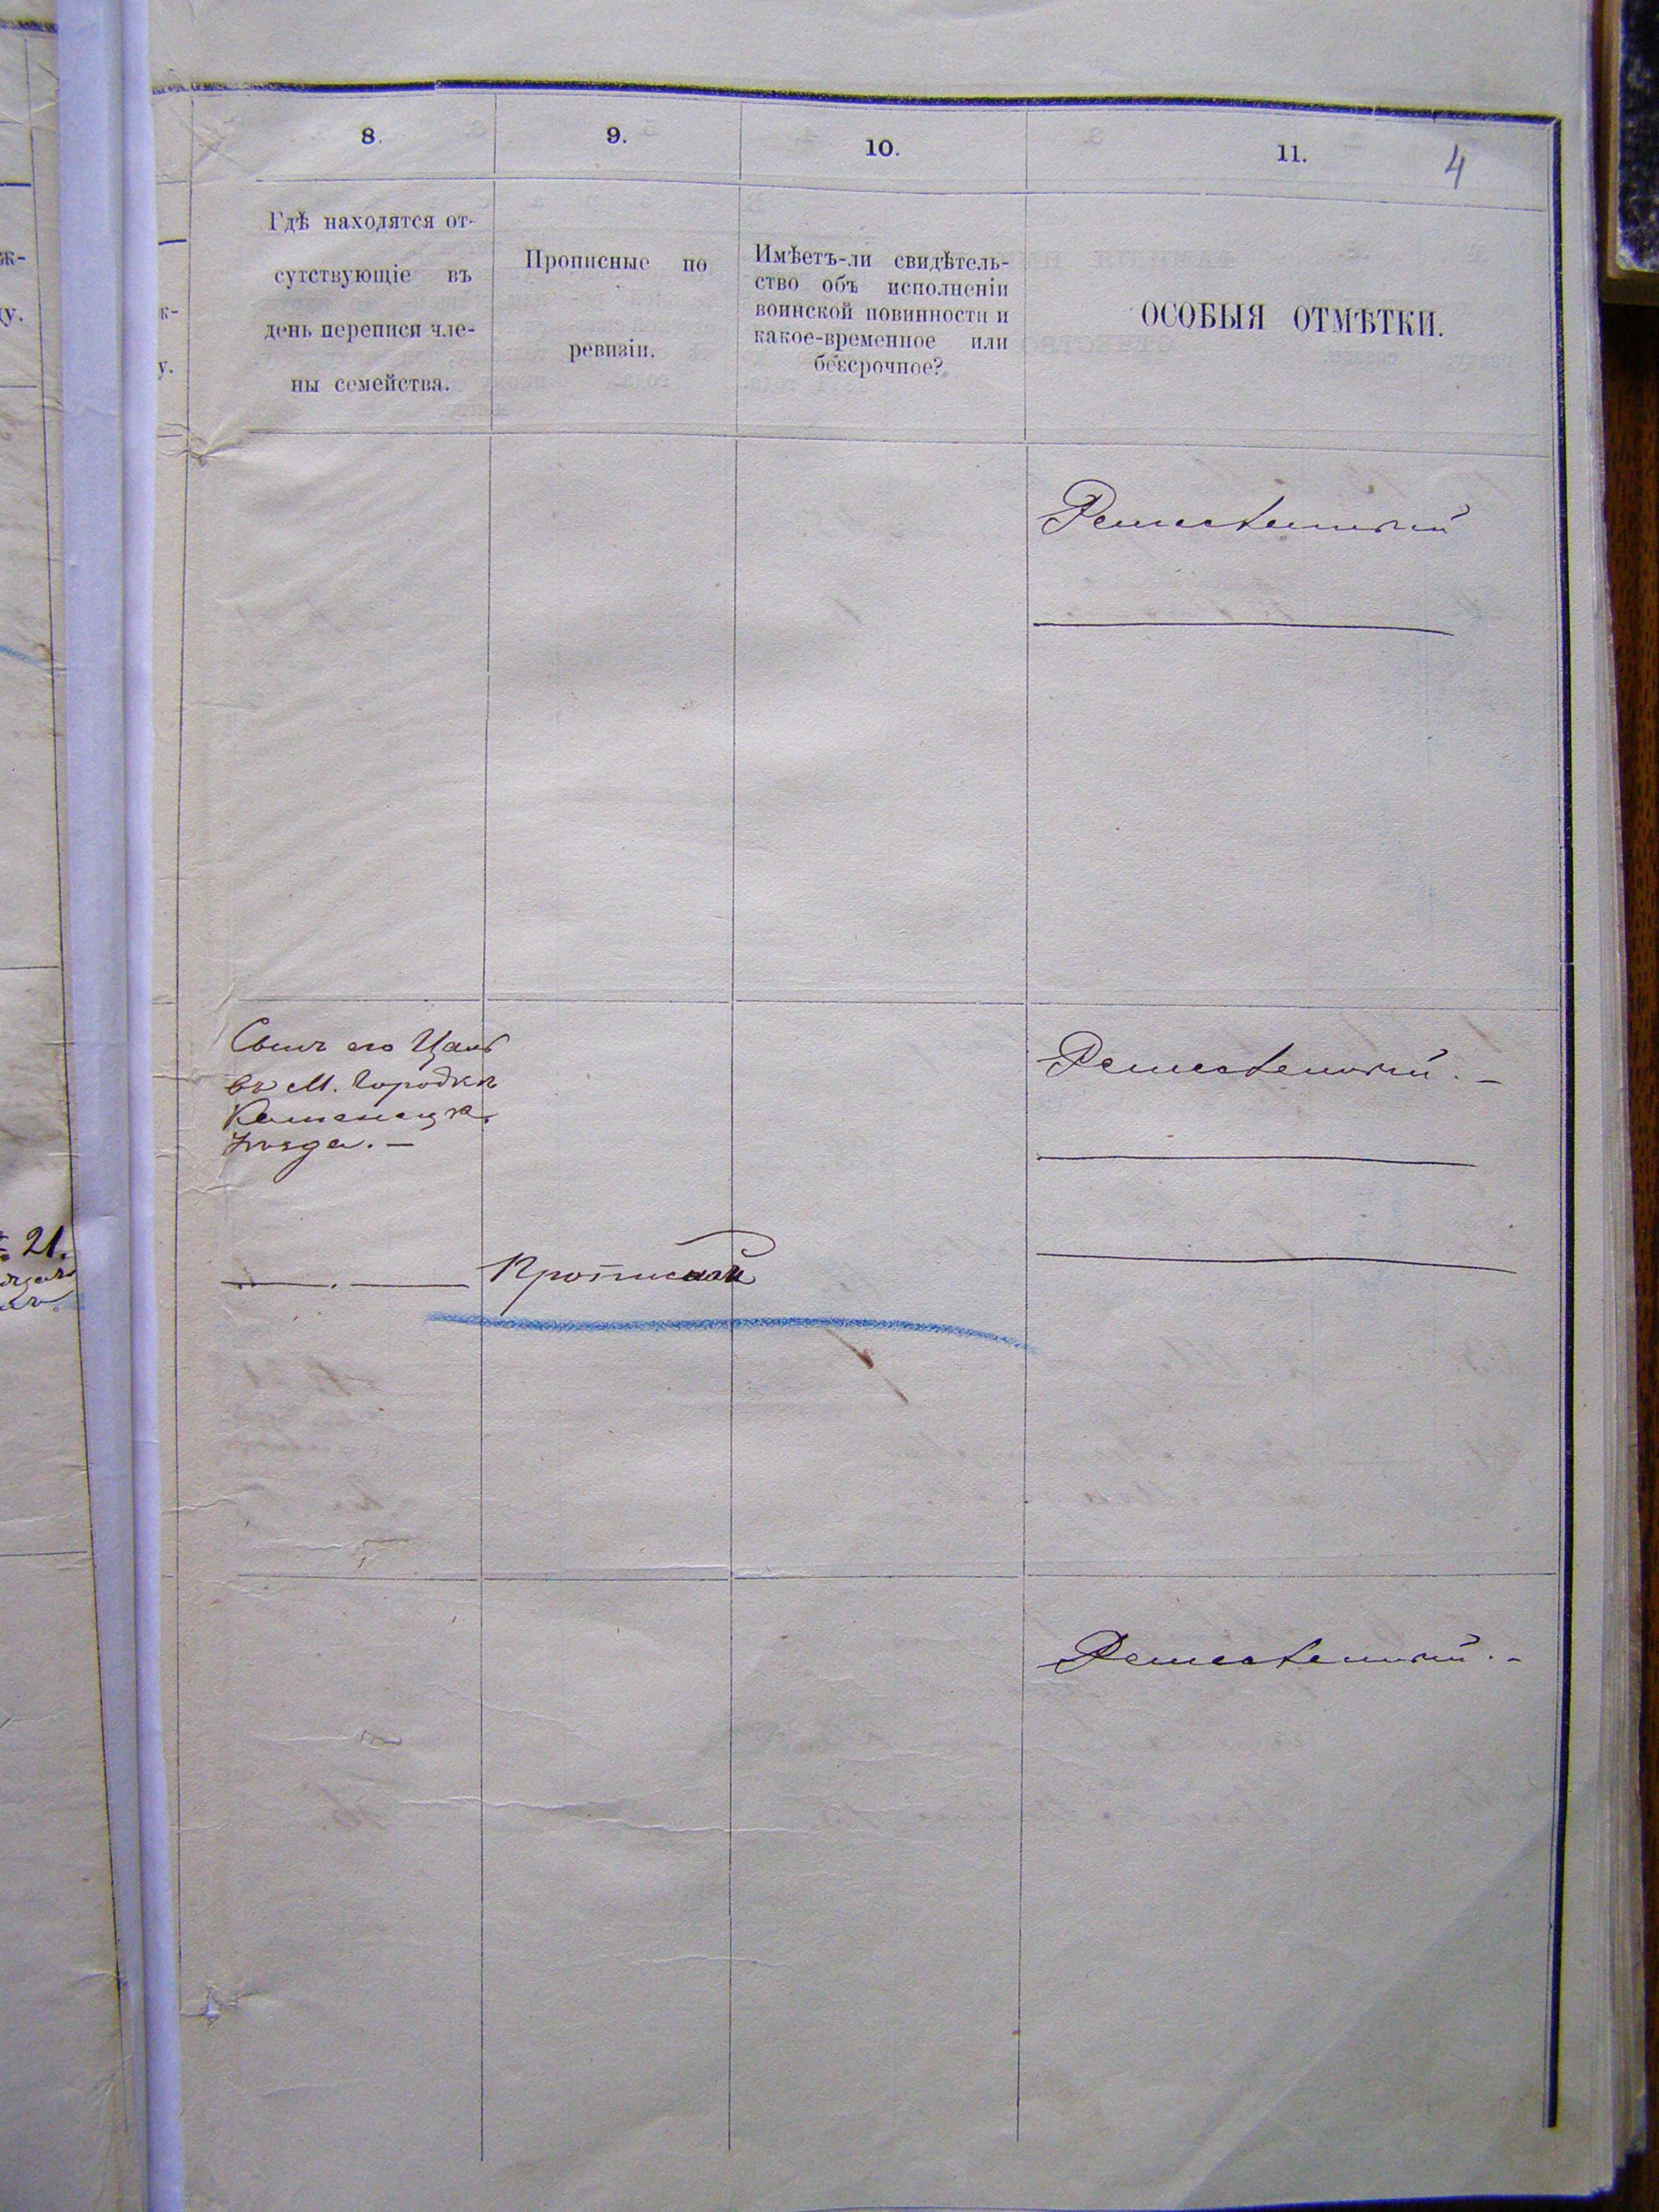 8.
9.
10.
11.
4
Гдѣ находятся от-
сутствующіе въ
день переписи чле-
ны семейства.
Прописные по
ревизіи.
Имѣетъ-ли свидѣтель-
ство объ исполненіи
воинской повинности и
какое-временное или
безсрочное?
ОСОБЫЯ ОТМѢТКИ.
Ремесленный
Сынъ его
въ М. Городкѣ
Каменецк.
уѣзда. —
Ремесленный. —
Прописной
Ремесленный. -
ж-
у.
к-
у.
21.